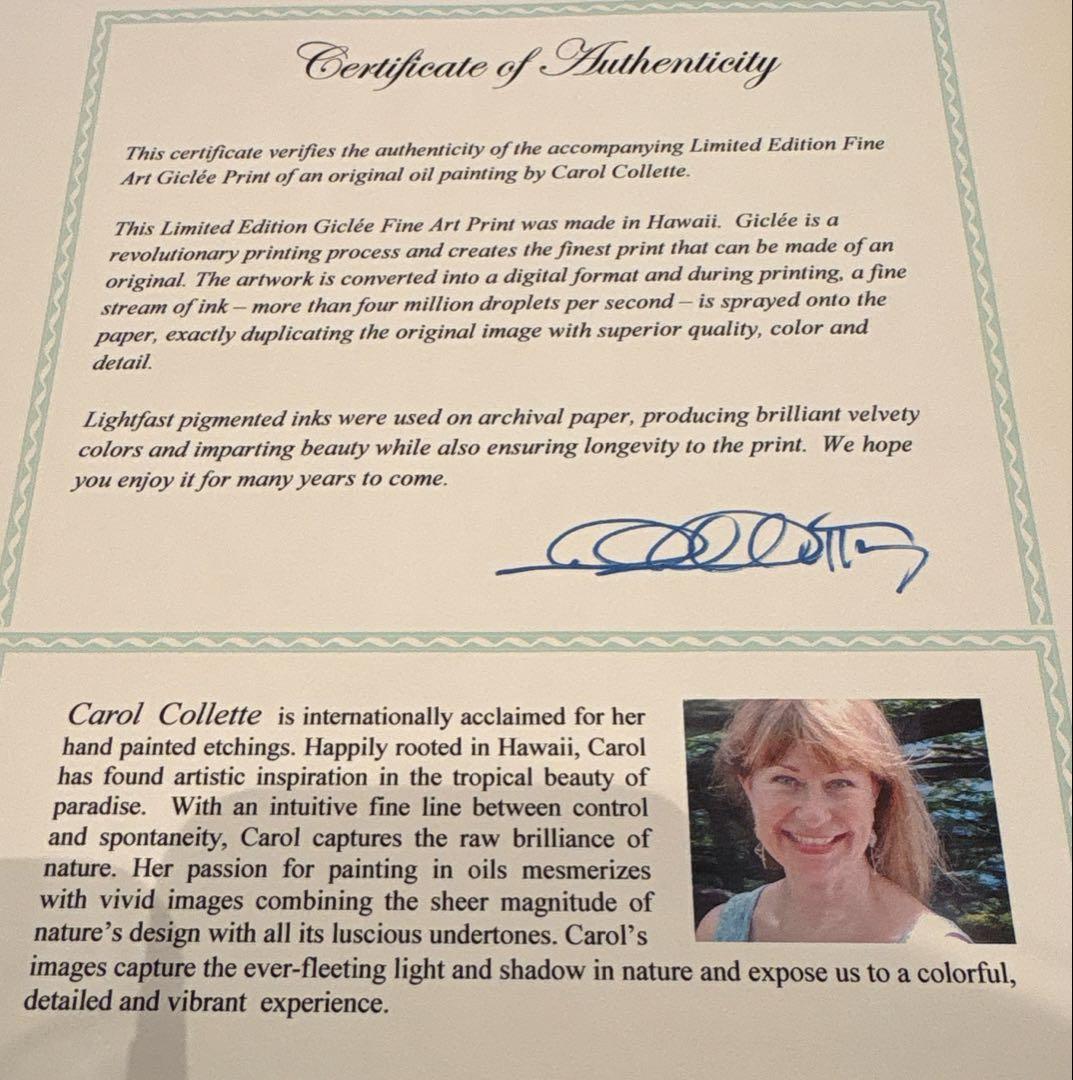 Certificate of Authenticity
This certificate verifies the authenticity of the accompanying Limited Edition Fine
Art Giclée Print of an original oil painting by Carol Collette.
This Limited Edition Giclée Fine Art Print was made in Hawaii. Giclée is a
revolutionary printing process and creates the finest print that can be made of an
original. The artwork is converted into a digital format and during printing, a fine
stream of ink – more than four million droplets per second – is sprayed onto the
paper, exactly duplicating the original image with superior quality, color and
detail.
Lightfast pigmented inks were used on archival paper, producing brilliant velvety
colors and imparting beauty while also ensuring longevity to the print. We hope
you enjoy it for many years to come.
Carol Collette is internationally acclaimed for her
hand painted etchings. Happily rooted in Hawaii, Carol
has found artistic inspiration in the tropical beauty of
paradise. With an intuitive fine line between control
and spontaneity, Carol captures the raw brilliance of
nature. Her passion for painting in oils mesmerizes
with vivid images combining the sheer magnitude of
nature's design with all its luscious undertones. Carol's
images capture the ever-fleeting light and shadow in nature and expose us to a colorful,
detailed and vibrant experience.